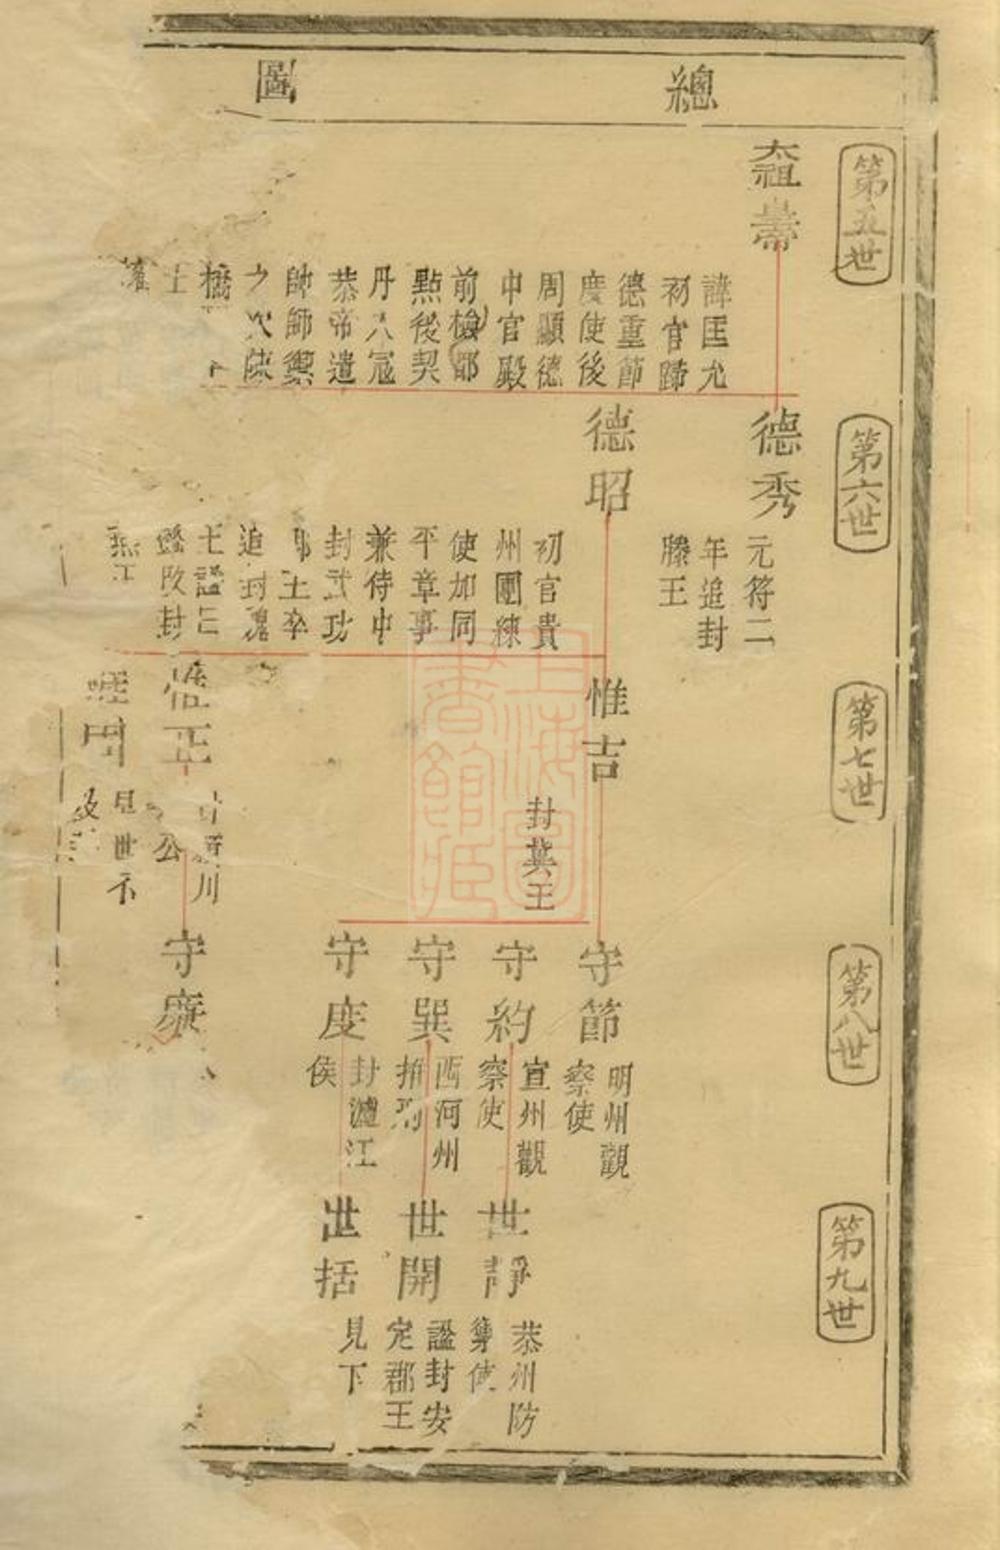 總圖
第五世
太祖
諱匡允
初官歸
德重節
度使後
周顯德
中官殿
前檢都
點後契
丹入冦
恭帝遣
帥師禦
之次陳
橋
第六世
德秀
元符二
年追封
滕王
德昭
初官貴
州團練
使加同
平章事
兼侍中
封武功
郡王卒
追封魏
王諡曰
懿改封
燕王
第七世
惟吉
封冀王
惟正
公
見世下
第八世
守節
明州觀
察使
守約
宣州觀
察使
守巽
西河州
守度
封瀘江
侯
守廉
第九世
世靜
恭州防
禦使
世開
諡封安
定郡王
世括
見下
上海圖書館藏